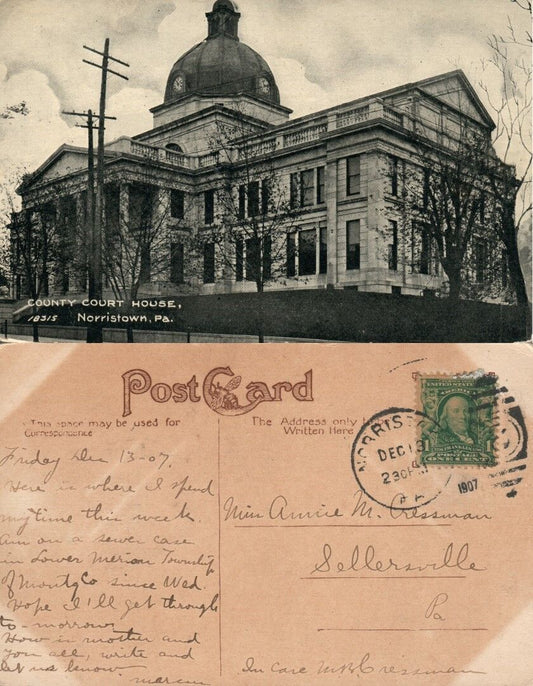 COUNTY COURT HOUSE,
18315 Norristown, Pa.
POST CARD
This space may be used for
Correspondence
The Address only
Written Here
UNITED STATES
NORRIS
DEC 13
230P
PA
1907
Friday Dec 13-07.
Here is where I spend
my time this week.
Am on a sewer case
in Lower Merion Township
of Montg Co since Wed.
Hope I'll get through
to-morrow.
How is mother and
you all, write and
let us know.
Miss Annie M. Cressman
Sellersville
Pa
In care M.B. Cressman